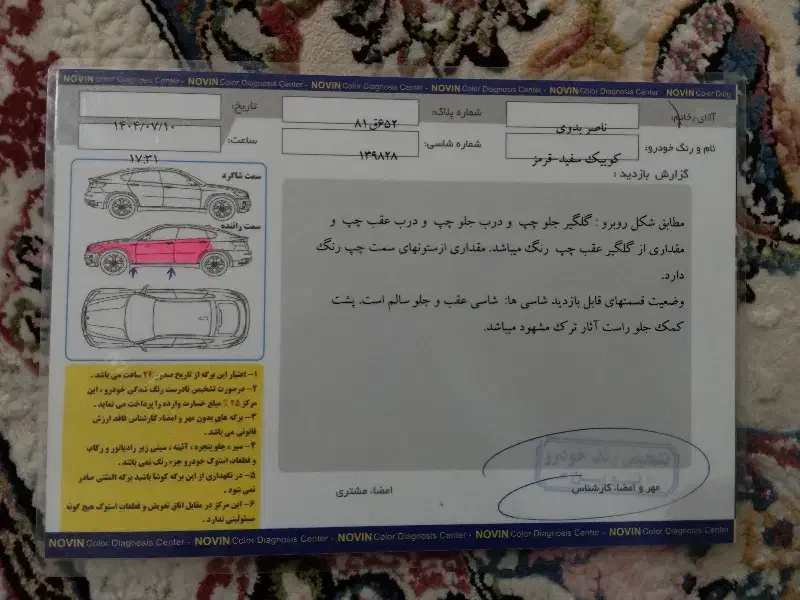 NOVIN Color Diagnosis Center - NOVIN Color Diagnosis Center - NOVIN Color Diagnosis Center - NOVIN Color Diagnosis Center - NOVIN Color Diagnosis Center - NOVIN Color Diag
آقای/خانم: ناصر بدوی
شماره پلاک: ۶۵۲ق۸۱
تاریخ: ۱۴۰۴/۰۷/۱۰
نام و رنگ خودرو: کوییک سفید-قرمز
شماره شاسی: ۱۳۹۸۲۸
ساعت: ۱۷:۳۱
گزارش بازدید :
مطابق شکل روبرو : گلگیر جلو چپ و درب جلو چپ و درب عقب چپ و
مقداری از گلگیر عقب چپ رنگ میباشد. مقداری ازستونهای سمت چپ رنگ
دارد.
وضعیت قسمتهای قابل بازدید شاسی ها: شاسی عقب و جلو سالم است. پشت
کمک جلو راست آثار ترک مشهود میباشد.
سمت شاگرد
سمت راننده
۱- اعتبار این برگه از تاریخ صدور ۲۴ ساعت می باشد .
۲- درصورت تشخیص نادرست رنگ شدگی خودرو ، این
مرکز ۲۵ ٪ مبلغ خسارت وارده را پرداخت می نماید .
۳- برگه های بدون مهر و امضاء کارشناس فاقد ارزش
قانونی می باشد .
۴- سپر ، جلو پنجره ، آئینه ، سینی زیر رادیاتور و رکاب
و قطعات استوک خودرو جزء رنگ نمی باشد .
۵- در نگهداری از این برگه کوشا باشید برگه المثنی صادر
نمی شود .
۶- این مرکز در مقابل اتاق تعویض و قطعات استوک هیچ گونه
مسئولیتی ندارد .
امضاء مشتری
مهر و امضاء کارشناس
تشخیص رنگ خودرو
NOVIN Color Diagnosis Center - NOVIN Color Diagnosis Center - NOVIN Color Diagnosis Center - NOVIN Color Diagnosis Center - NOVIN Color Diagnosis Center